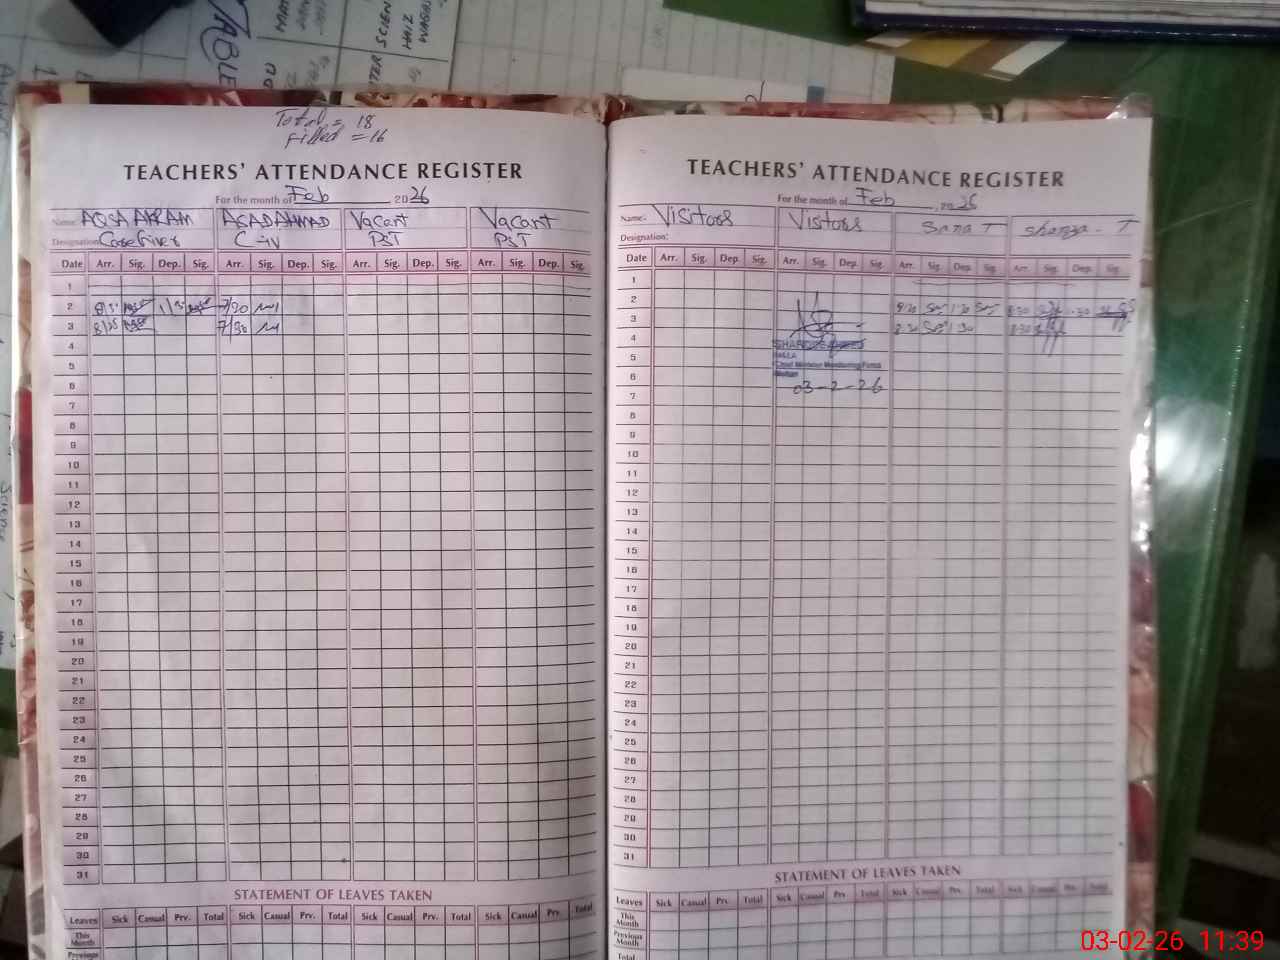 TABLE
Total = 18
Filled = 16
TEACHERS' ATTENDANCE REGISTER
For the month of Feb 2026
Name: AQSA AKRAM ASAD AHMAD Vacant Vacant
Designation: CareGiver C-iv PST PST
Date Arr. Sig. Dep. Sig. Arr. Sig. Dep. Sig. Arr. Sig. Dep. Sig. Arr. Sig. Dep. Sig.
1
2 7/30
3 8/25 7/30
4
5
6
7
8
9
10
11
12
13
14
15
16
17
18
19
20
21
22
23
24
25
26
27
28
29
30
31
STATEMENT OF LEAVES TAKEN
Leaves Sick Casual Prv. Total Sick Casual Prv. Total Sick Casual Prv. Total Sick Casual Prv. Total
This Month
Previous
TEACHERS' ATTENDANCE REGISTER
For the month of Feb 2026
Name: Visitors Visitors Sana T Shanza - T
Designation:
Date Arr. Sig. Dep. Sig. Arr. Sig. Dep. Sig. Arr. Sig. Dep. Sig. Arr. Sig. Dep. Sig.
1
2 8:30 1:30
3 8:30
4
5
Chief Minister Monitoring Force
6
03-2-26
7
8
9
10
11
12
13
14
15
16
17
18
19
20
21
22
23
24
25
26
27
28
29
30
31
STATEMENT OF LEAVES TAKEN
Leaves Sick Casual Prv. Total Sick Casual Prv. Total Sick Casual Prv. Total Sick Casual Prv. Total
This Month
Previous Month
Total
03-02-26 11:39